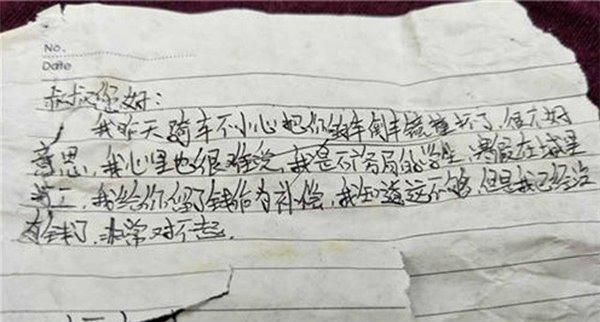 No.
Date
叔叔你好：
我昨天骑车不小心把你车倒车镜撞坏了，很不好
意思，我心里也很难受，我是的学生，寒假在城里
打工，我给你留了钱作为补偿，我知道这不够，但是我已经没
有钱了，非常对不起。